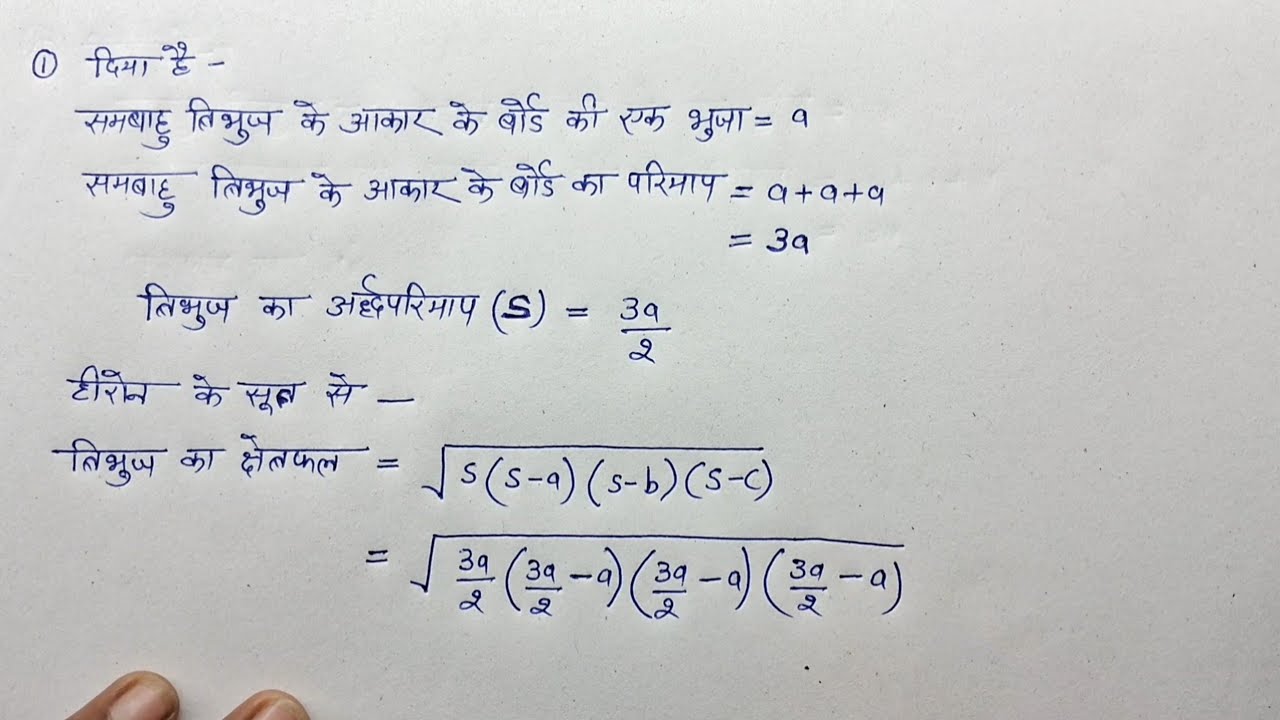 ① दिया है -
समबाहु त्रिभुज के आकार के बोर्ड की एक भुजा = a
समबाहु त्रिभुज के आकार के बोर्ड का परिमाप = a + a + a
= 3a
त्रिभुज का अर्द्धपरिमाप (S) = 3a/2
हीरोन के सूत्र से —
त्रिभुज का क्षेत्रफल = √(s(s-a)(s-b)(s-c))
= √(3a/2(3a/2 - a)(3a/2 - a)(3a/2 - a))